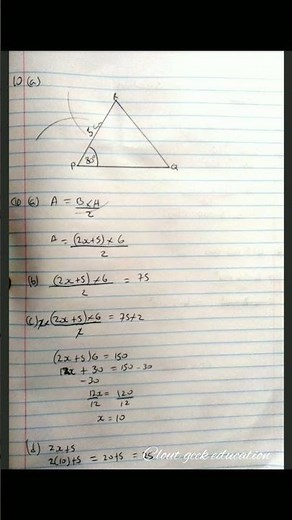 1) (a)
R
5
P 85 Q
(a) A = B×H
2
A = (2x+5)×6
2
(b) (2x+5)×6 = 75
2
(c) 2×(2x+5)×6 = 75×2
2
(2x+5)6 = 150
12x + 30 = 150 - 30
-30
12x = 120
12 12
x = 10
(d) 2x+5
2(10)+5 = 20+5 =
geek education